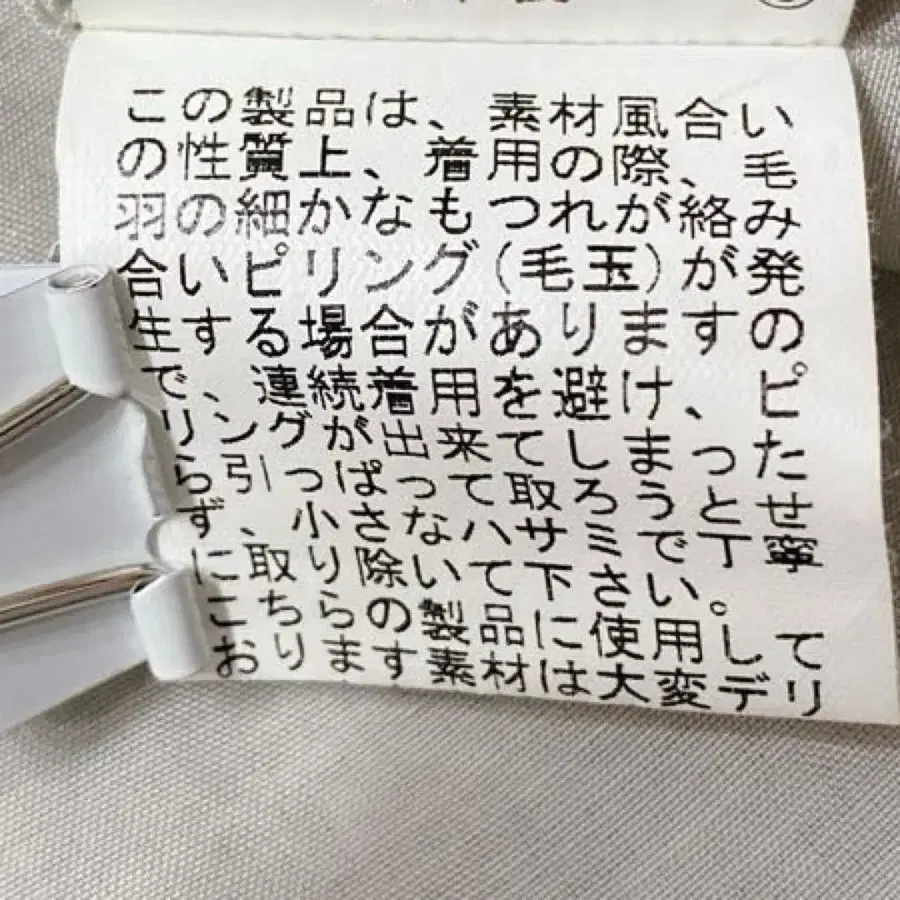 この製品は、素材風合い
の性質上、着用の際、毛
羽の細かなもつれが絡み
合いピリング(毛玉)が発
生する場合がありますの
で、連続着用を避け、ピ
リングが出来てしまった
ら引っぱって取ろうとせ
ず、小さなハサミで丁寧
に取り除いて下さい。
こちらの製品に使用して
おります素材は大変デリ